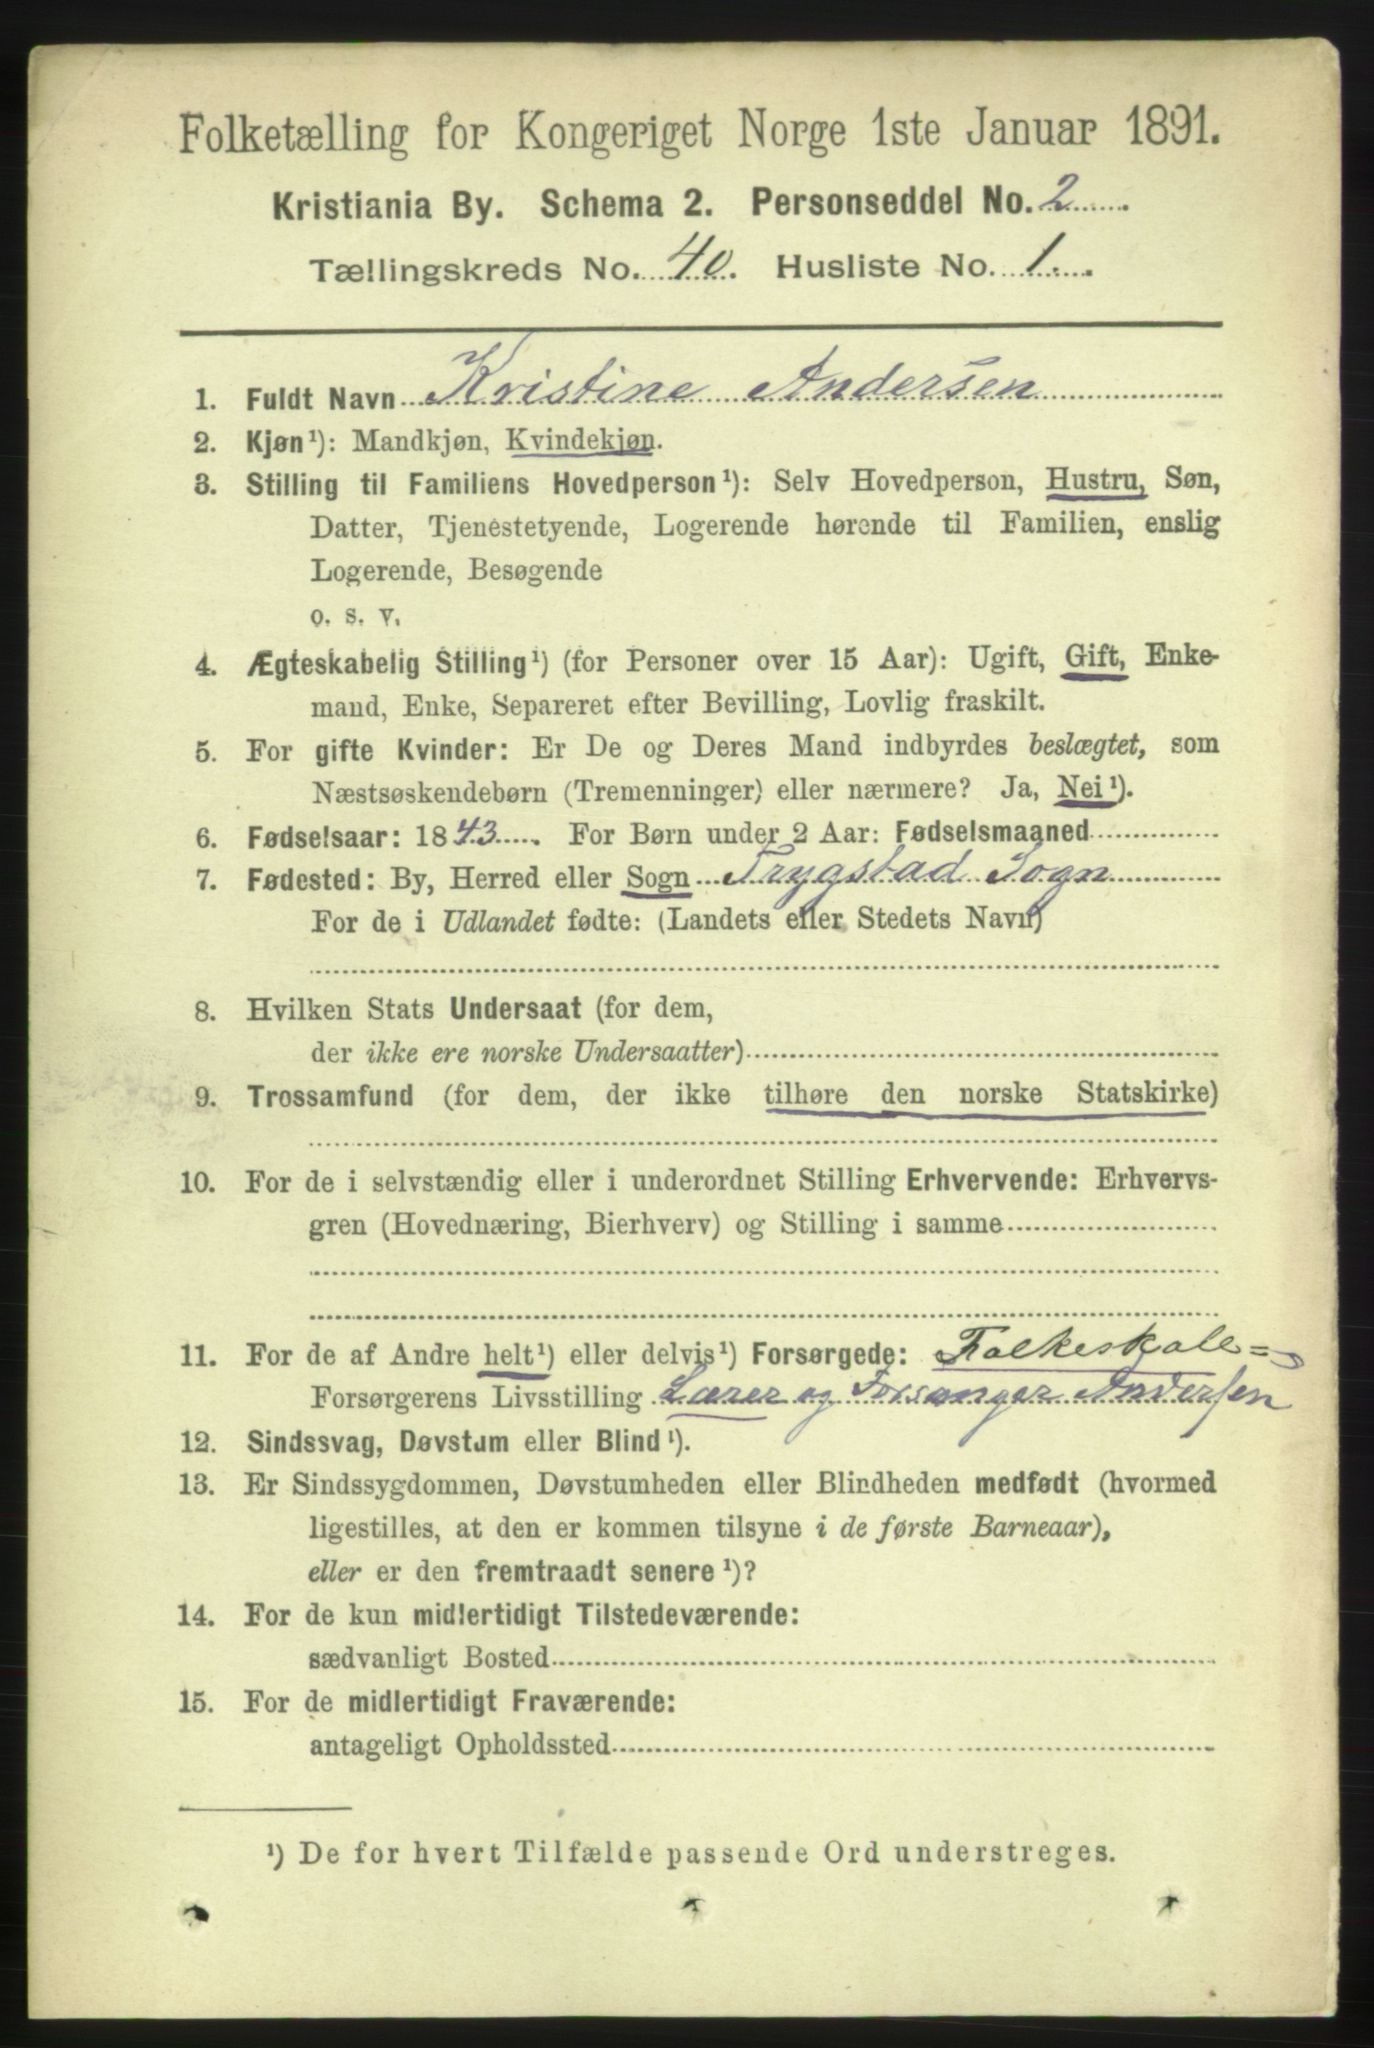 Folketælling for Kongeriget Norge 1ste Januar 1891.
Kristiania By. Schema 2. Personseddel No. 2
Tællingskreds No. 40. Husliste No. 1.
1. Fuldt Navn Kristine Andersen
2. Kjøn¹): Mandkjøn, Kvindekjøn.
3. Stilling til Familiens Hovedperson¹): Selv Hovedperson, Hustru, Søn,
Datter, Tjenestetyende, Logerende hørende til Familien, enslig
Logerende, Besøgende
o. s. v.
4. Ægteskabelig Stilling¹) (for Personer over 15 Aar): Ugift, Gift, Enke-
mand, Enke, Separeret efter Bevilling, Lovlig fraskilt.
5. For gifte Kvinder: Er De og Deres Mand indbyrdes beslægtet, som
Næstsøskendebørn (Tremenninger) eller nærmere? Ja, Nei¹).
6. Fødselsaar: 1843. For Børn under 2 Aar: Fødselsmaaned
7. Fødested: By, Herred eller Sogn Trygstad Sogn
For de i Udlandet fødte: (Landets eller Stedets Navn)
8. Hvilken Stats Undersaat (for dem,
der ikke ere norske Undersaatter)
9. Trossamfund (for dem, der ikke tilhøre den norske Statskirke)
10. For de i selvstændig eller i underordnet Stilling Erhvervende: Erhvervs-
gren (Hovednæring, Bierhverv) og Stilling i samme
11. For de af Andre helt¹) eller delvis¹) Forsørgede: Folkeskole=
Forsørgerens Livsstilling Lærer og Forsanger Andersen
12. Sindssvag, Døvstum eller Blind¹).
13. Er Sindssygdommen, Døvstumheden eller Blindheden medfødt (hvormed
ligestilles, at den er kommen tilsyne i de første Barneaar),
eller er den fremtraadt senere¹)?
14. For de kun midlertidigt Tilstedeværende:
sædvanligt Bosted
15. For de midlertidigt Fraværende:
antageligt Opholdssted
¹) De for hvert Tilfælde passende Ord understreges.